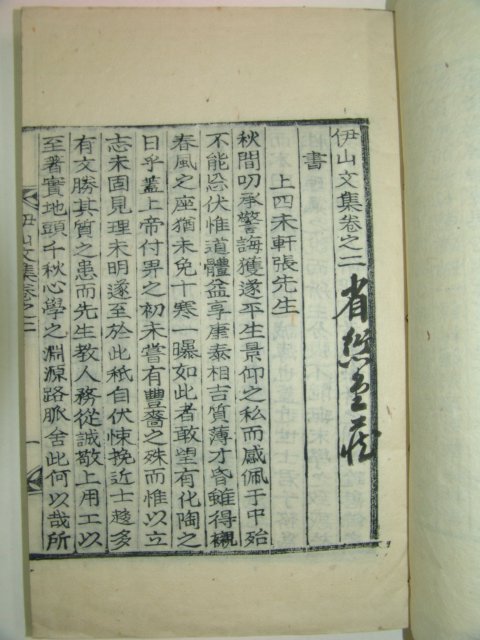 伊山文集卷之二
省愆堂藏
書
上四未軒張先生
秋間叨承警誨獲遂平生景仰之私而感佩于中殆
不能忘伏惟道體益享康泰相吉質薄才昏雖得襯
春風之座猶未免十寒一曝如此者敢望有化陶之
日乎蓋上帝付畀之初未嘗有豐嗇之殊而惟以立
志未固見理未明遂至於此秖自伏悚挽近士趍多
有文勝其質之患而先生教人務從誠敬上用工以
至著實地頭千秋心學之淵源路脈舍此何以哉所
伊山文集卷之二
一